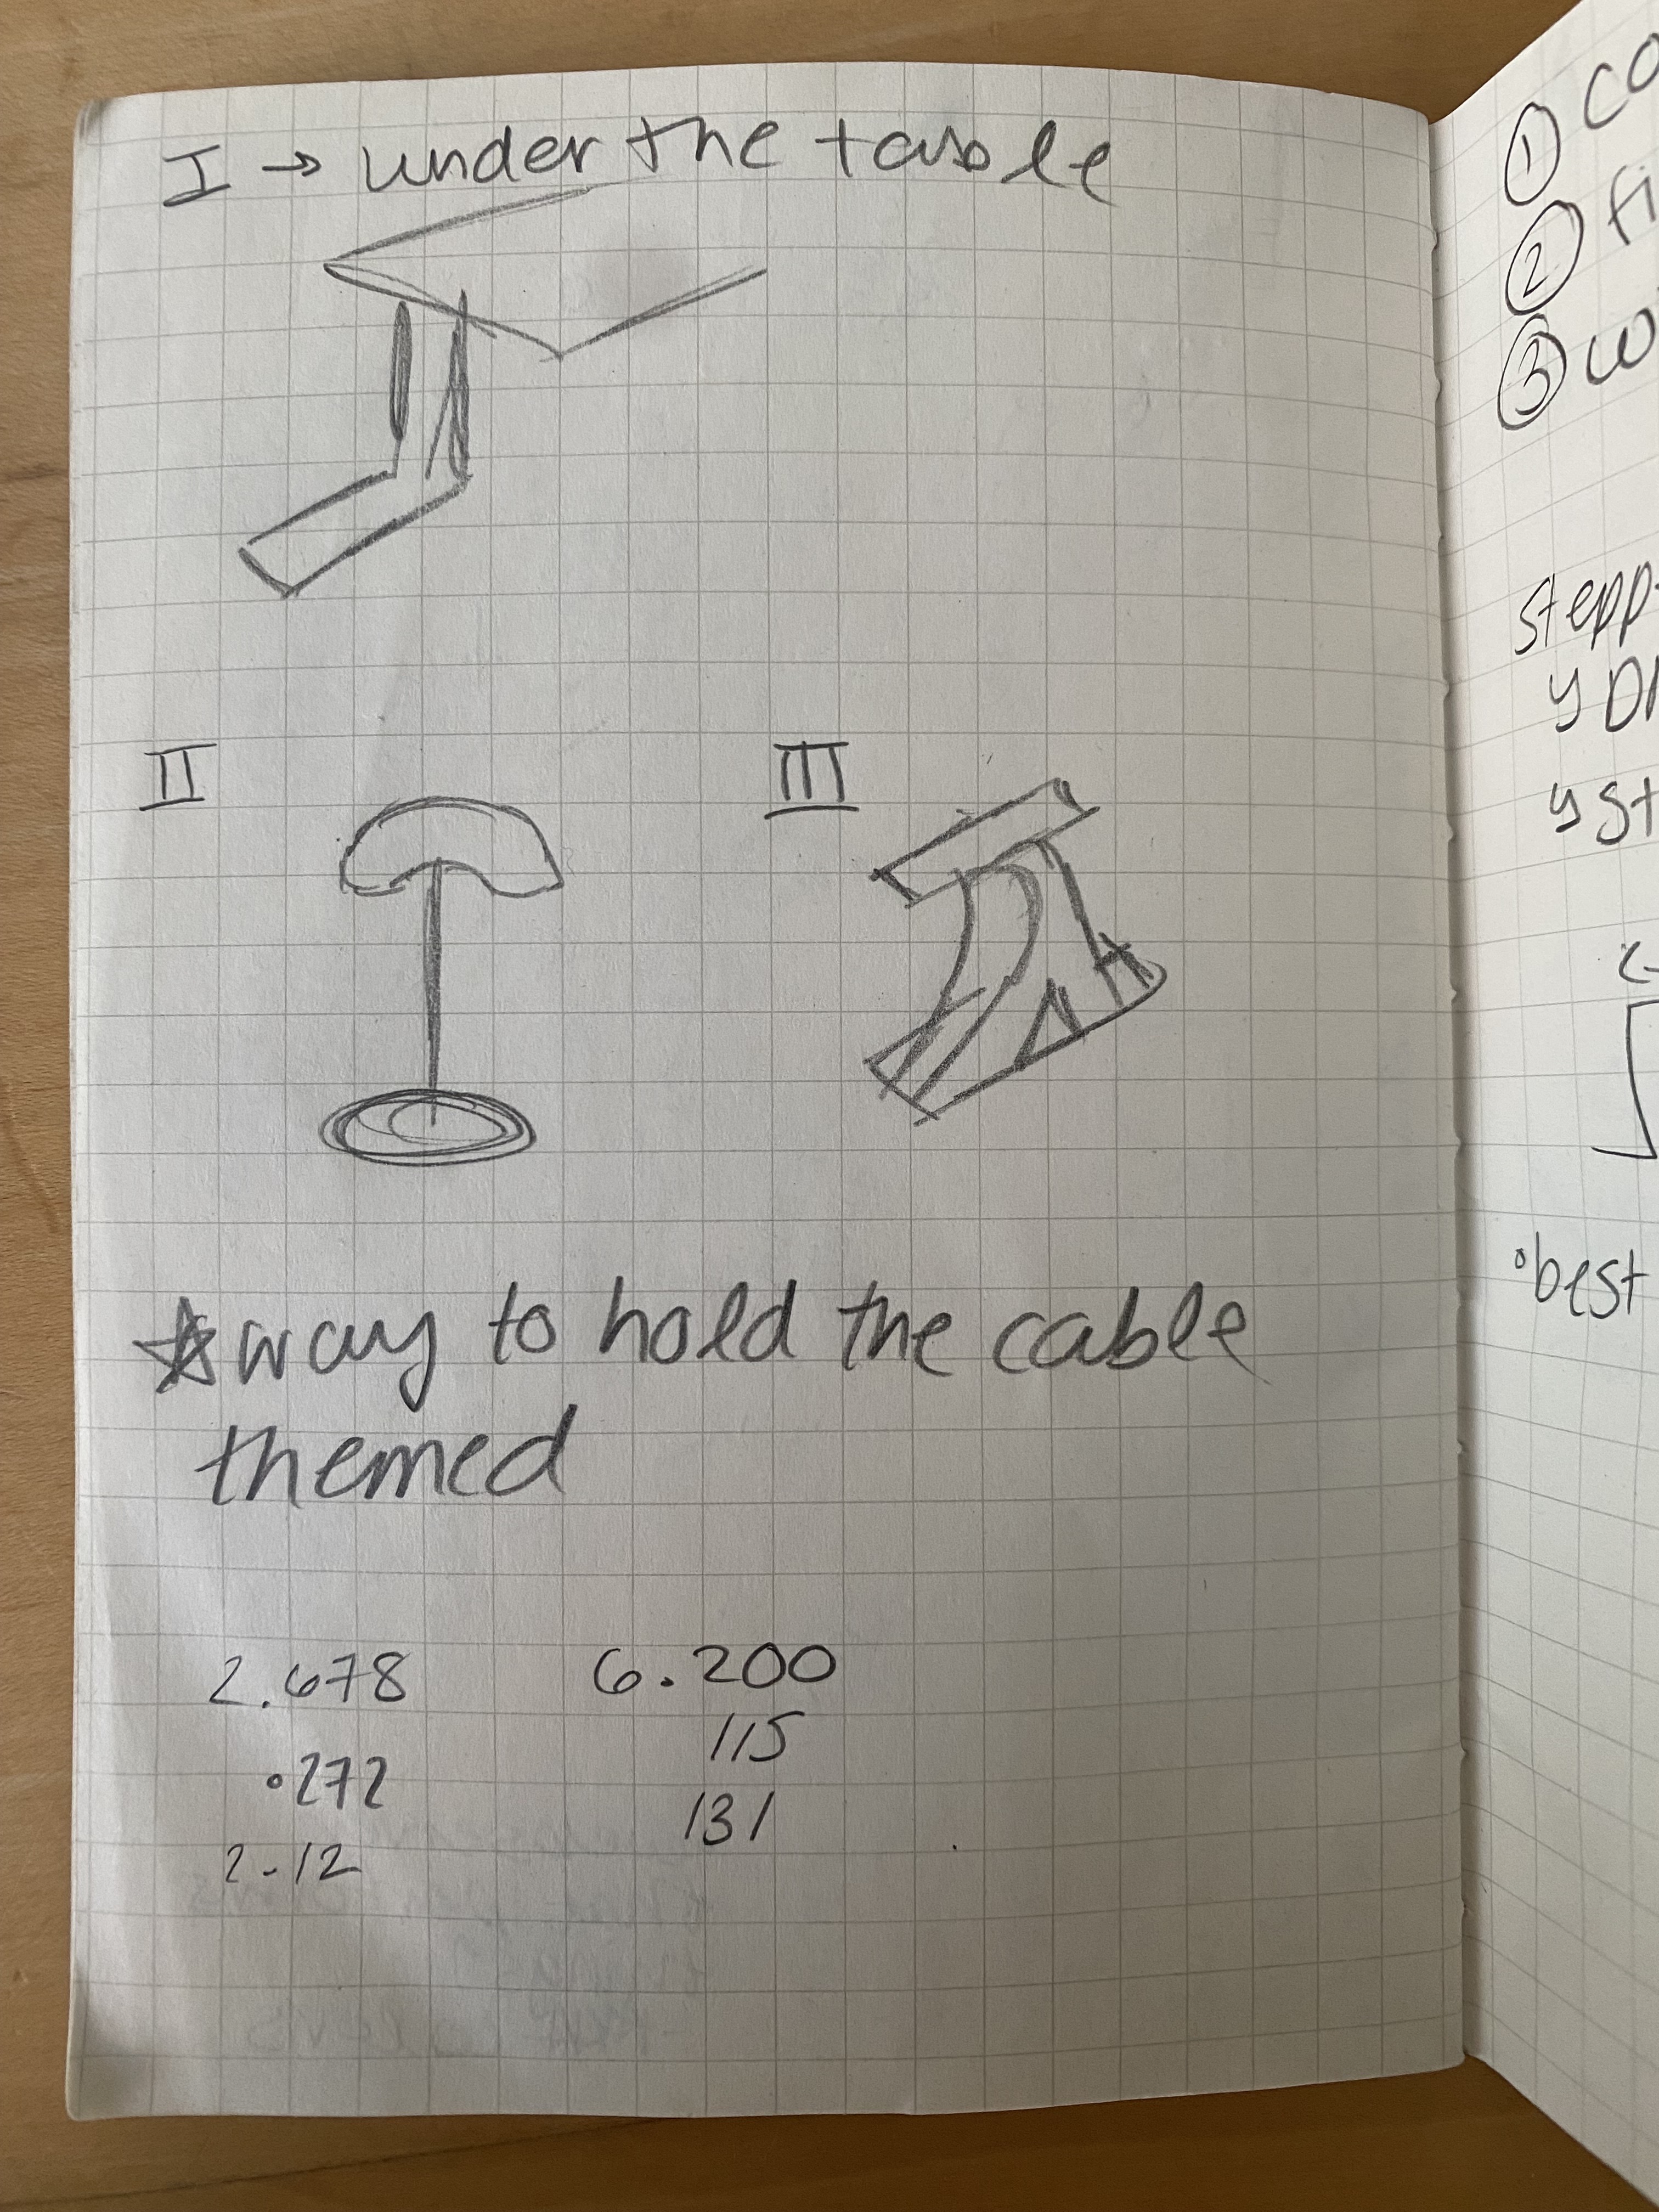 I → under the table
II
III
☆ way to hold the cable
themed
2.678
6.200
.272
115
2.12
131
①
②
③
best